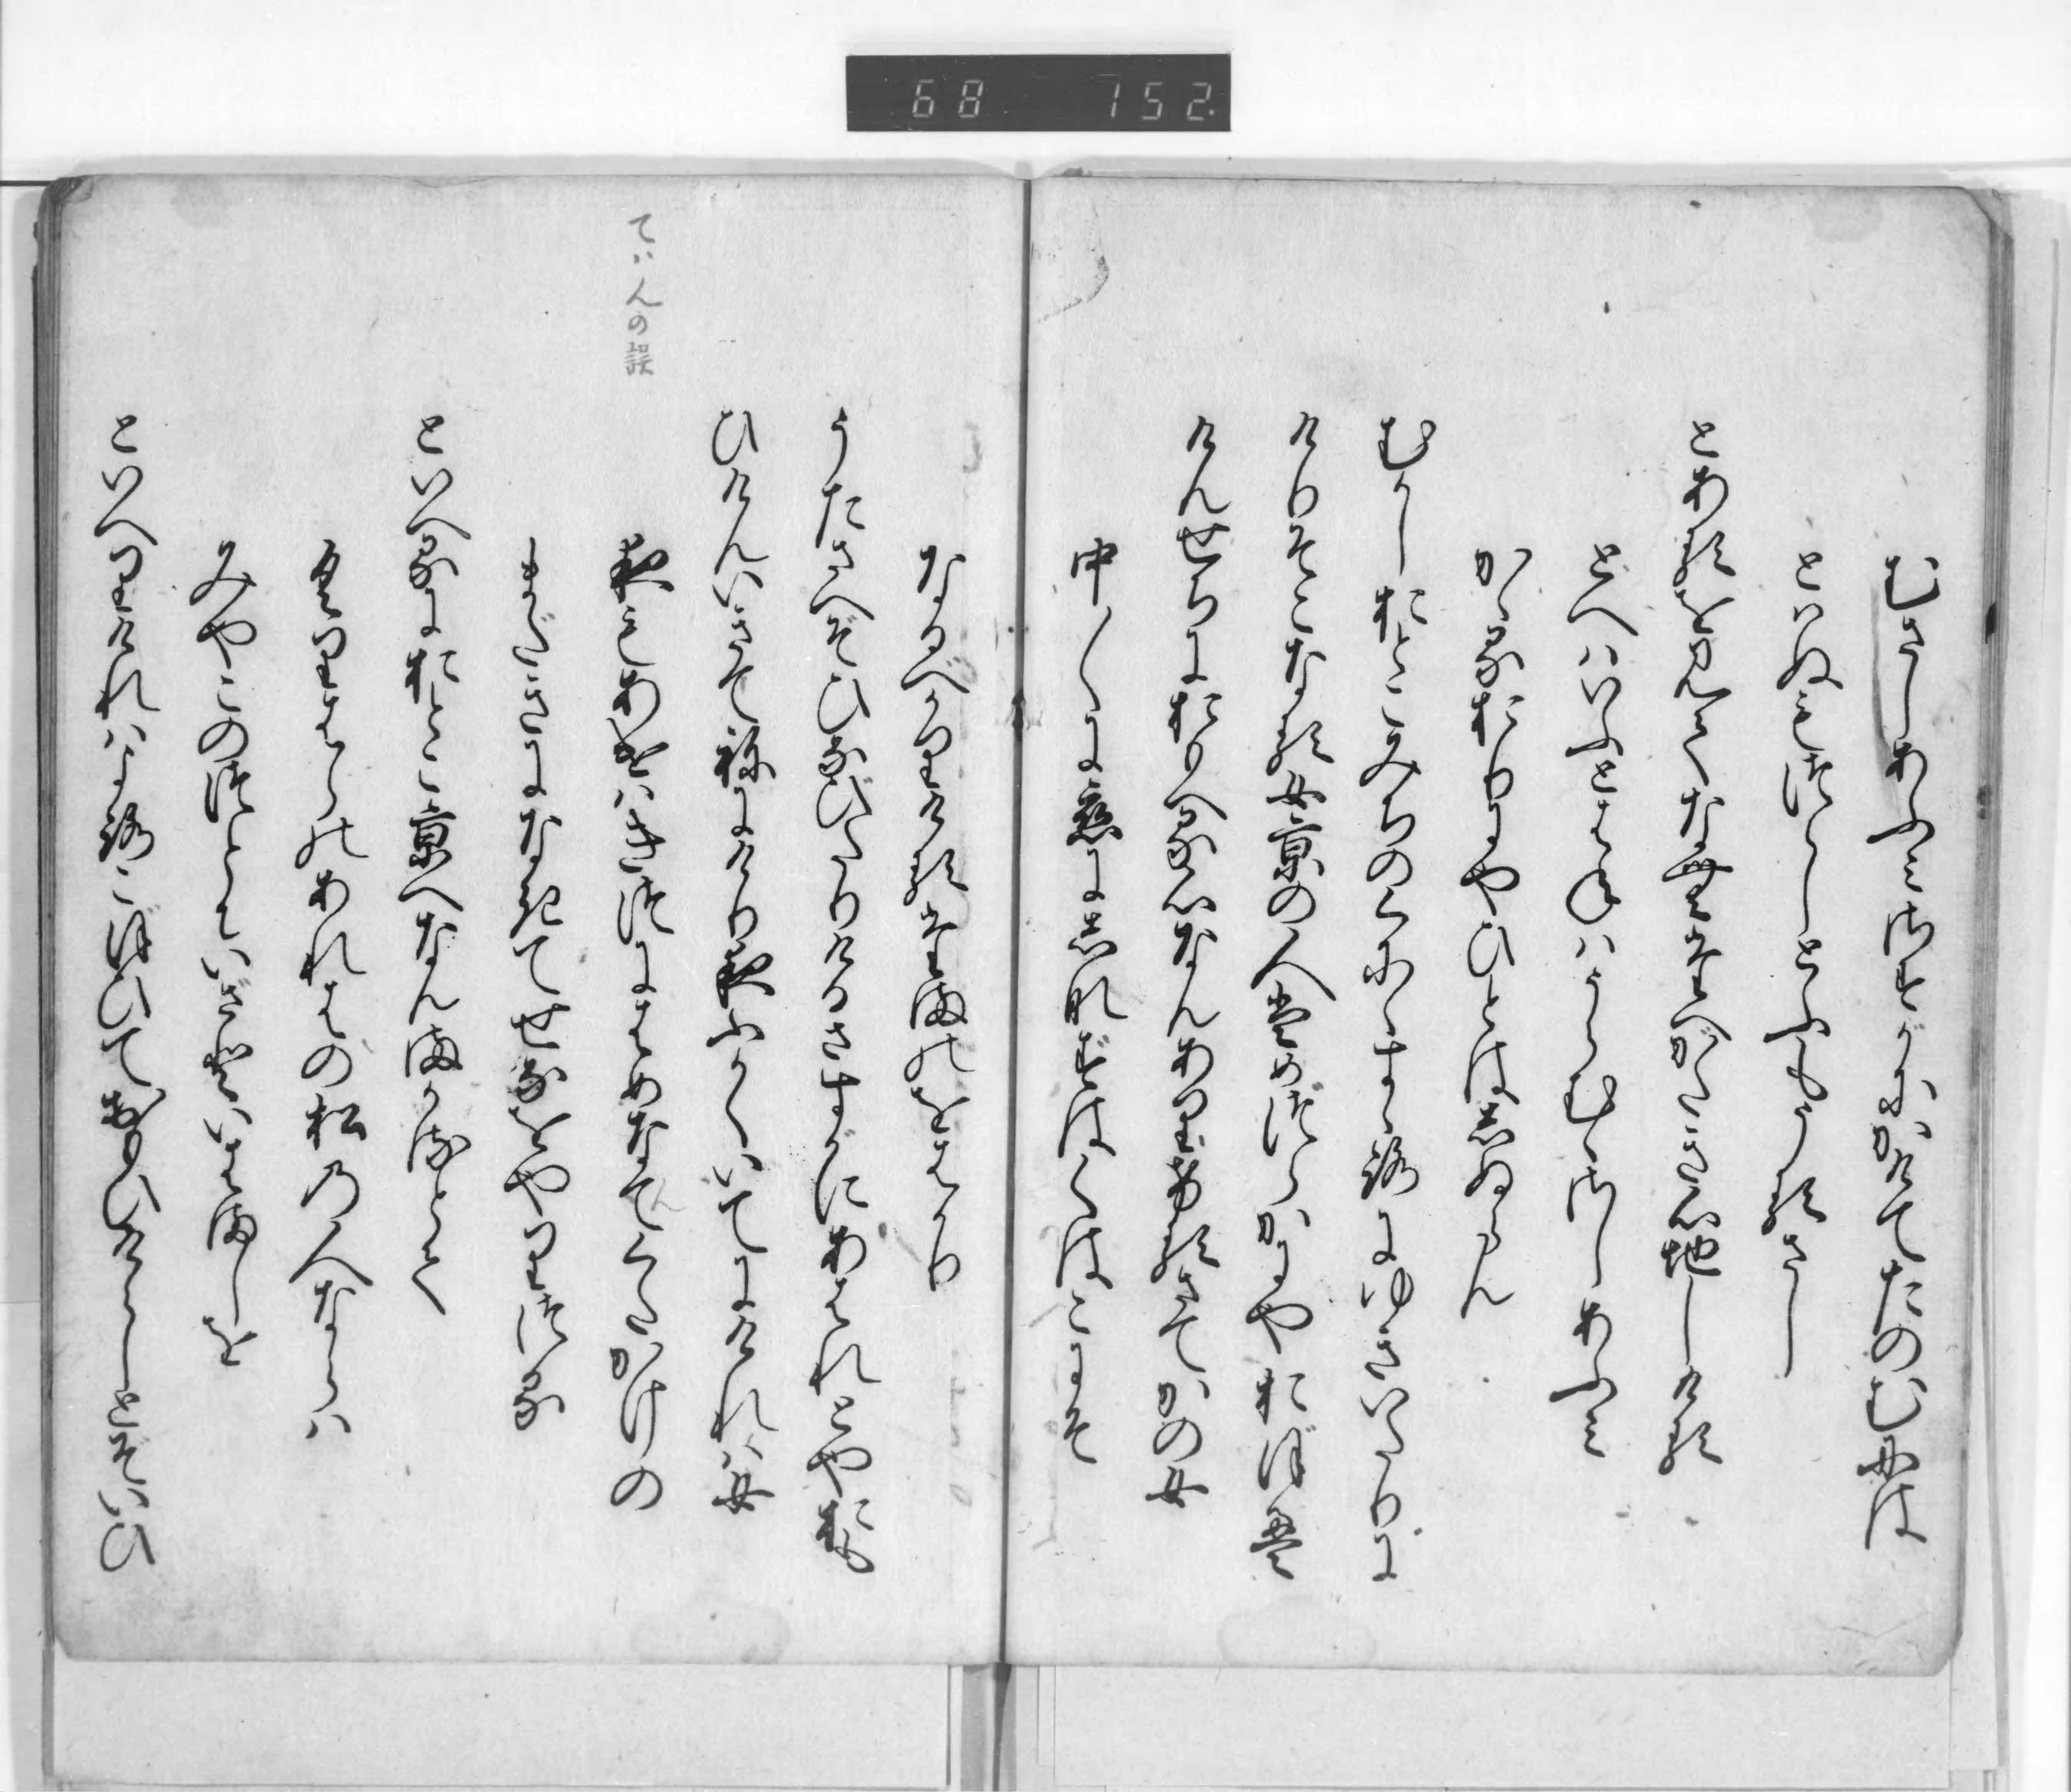 68 152
むさしあふみさすがにかけてたのむには
とはぬもつらしとふもうるさし
とあるを見てなむたへがたき心地しける
とへばいふとはねばうらむむさしあふみ
かゝるおりにやひとはしぬらん
むかしおとこみちのくにゝすゞろにゆきいたりに
けりそこなる女京の人はめづらかにやおぼえ
けんせちにおもへる心なんありけるさてかの女
中〳〵に恋にしなずはくはこにぞ
なるべかりけるたまのをばかり
うたさへぞひなびたりけるさすがにあはれとやおも
ひけんいきてねにけり夜ふかくいでにければ女
ていんの誤
夜もあけばきつにはめなでくたかけの
まだきになきてせなをやりつる
といへるにおとこ京へなんまかるとて
くりはらのあれはの松の人ならば
みやこのつとにいざといはましを
といへりければよろこぼひておもひけらしとぞいひ